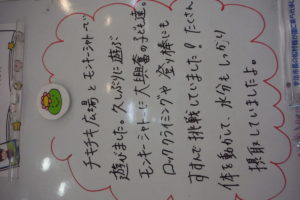 チキチキ広場とモンキーシャトーで
遊びました。久しぶりに遊ぶ
モンキーシャトーに大興奮の子ども達。
ロッククライミングや登り棒にも
すすんで挑戦していました！たくさん
体を動かして、水分もしっかり
摂取していましたよ。